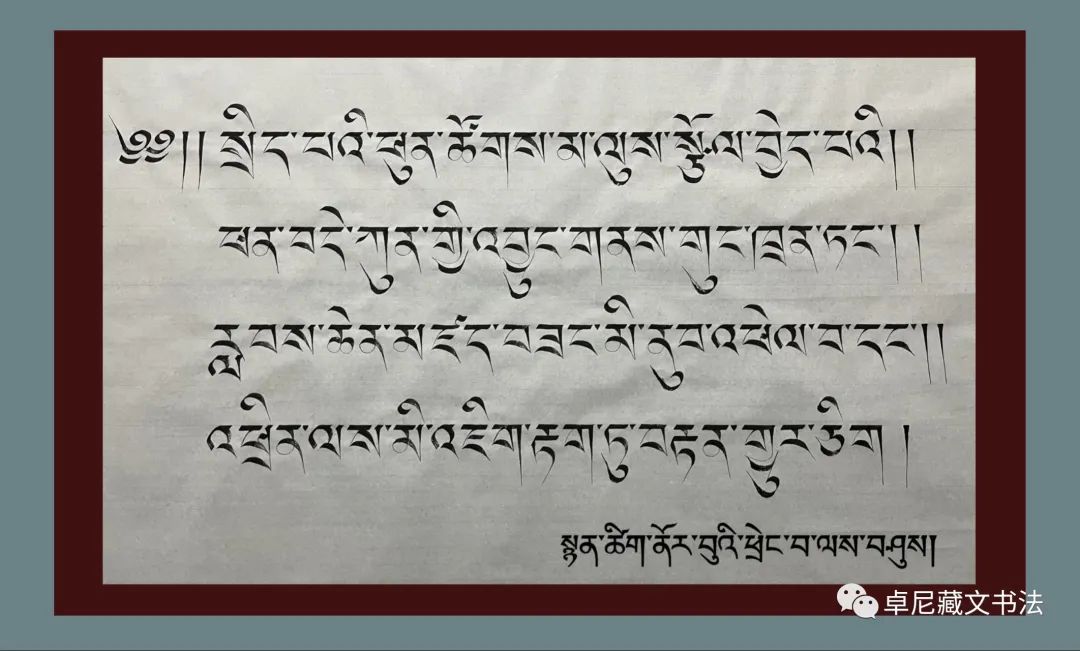 ༄༅།། སྲིད་པའི་ཕུན་ཚོགས་མ་ལུས་སྩོལ་བྱེད་པའི།།
ཕན་བདེ་ཀུན་གྱི་འབྱུང་གནས་གུང་ཁྲན་ཏང་།།
རླབས་ཆེན་མཛད་བཟང་མི་ནུབ་འཕེལ་བ་དང་།།
འཕྲིན་ལས་མི་འཇིག་རྟག་ཏུ་བརྟན་གྱུར་ཅིག །
སྙན་ཚིག་ནོར་བུའི་ཕྲེང་བ་ལས་བཤུས།
卓尼藏文书法